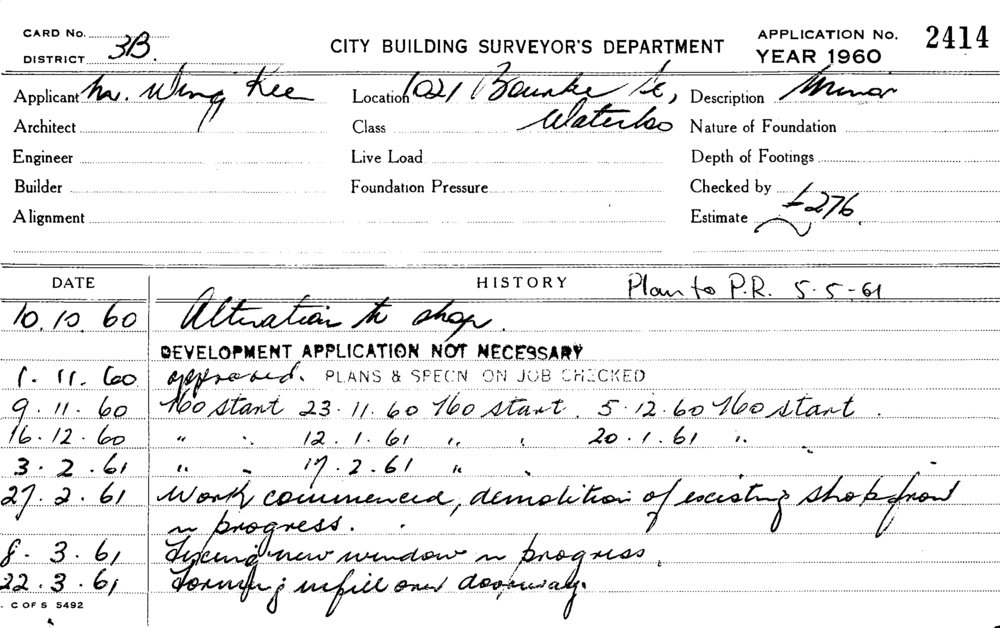 CARD No.
DISTRICT 3B.
CITY BUILDING SURVEYOR'S DEPARTMENT
APPLICATION No. 2414
YEAR 1960
Applicant Mr. Wing Kee Location 1021 Bourke St, Description Minor
Architect Class Waterloo Nature of Foundation
Engineer Live Load Depth of Footings
Builder Foundation Pressure Checked by
Alignment Estimate £276.
DATE HISTORY Plan to P.R. 5-5-61
10.10.60 Alteration to shop.
DEVELOPMENT APPLICATION NOT NECESSARY
1.11.60 approved. PLANS & SPECN ON JOB CHECKED
9.11.60 No start 23.11.60 No start. 5.12.60 No start.
16.12.60 " " 12.1.61 " " 20.1.61 " "
3.2.61 " " 17.2.61 " "
27.2.61 Work commenced, demolition of existing shop front
in progress.
8.3.61 Fixing new window in progress.
22.3.61 Forming infill over doorway.
C OF S 5492